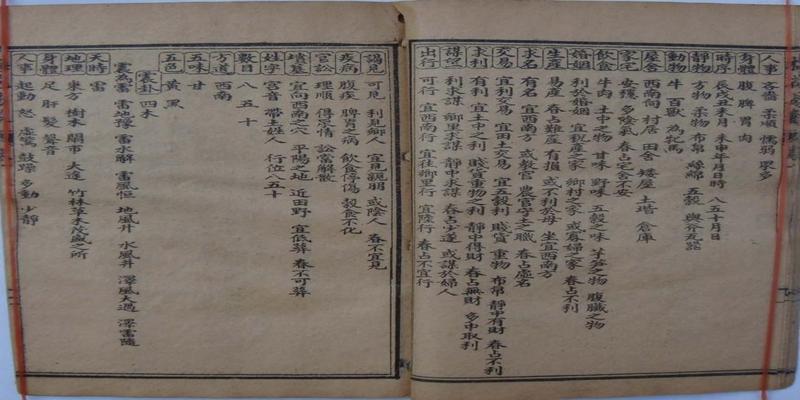 人事 吝嗇 柔順 懦弱 眾多
身體 腹 脾 胃 肉
時序 辰戌丑未月 未申年月日時 八五十月日
靜物 方物 柔物 布帛 絲綿 五穀 輿釜瓦器
動物 牛 百獸 為牝馬
屋舍 西南向 村居 田舍 矮屋 土堦 倉庫
家宅 安穩 多陰氣 春占宅舍不安
飲食 牛肉 土中之物 甘味 野味 五穀之味 芋笋之物 腹臟之物
婚姻 利於婚姻 宜稅產之家 鄉村之家 或寡婦之家 春占不利
生產 易產 春占難產 有損 或不利於母 坐宜西南方
求名 宜西南方 或教官 農官守土之職 春占虛名
交易 宜利交易 宜田土交易 宜五穀利 賤貨 重物 布帛 靜中有財 春占不利
求利 有利 宜土中之利 賤貨重物之利 靜中得財 春占無財 多中取利
謀望 利求謀 鄉里求謀 靜中求謀 春占少遂 或謀於婦人
出行 可行 宜西南行 宜往鄉里行 宜陸行 春占不宜行
謁見 可見 利見鄉人 宜見親朋 或陰人 春不宜見
疾病 腹疾 脾胃之病 飲食停傷 穀食不化
官訟 理順 得眾情 訟當解散
墳墓 宜向西南之穴 平陽之地 近田野 宜低葬 春不可葬
姓字 宮音 帶土姓人 行位八五十
數目 八 五 十
方道 西南
五味 甘
五色 黃 黑
震卦 四木
震為雷 雷地豫 雷水解 雷風恒 地風升 水風井 澤風大過 澤雷隨
天時 雷
地理 東方 樹木 鬧市 大途 竹林 草木茂盛之所
身體 足 肝 髮 聲音
人事 起動 怒 虛驚 鼓躁 多動少靜